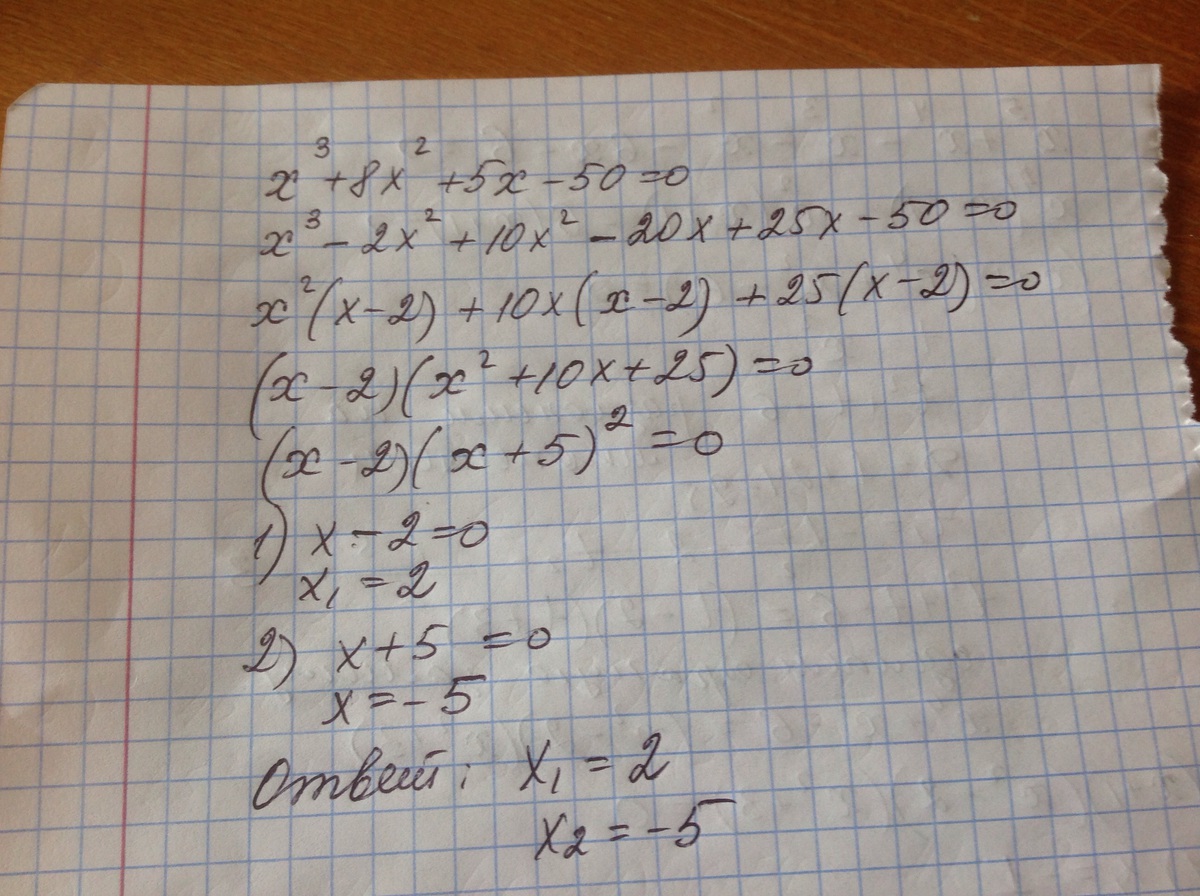 x³+8x²+5x-50=0
x³-2x²+10x²-20x+25x-50=0
x²(x-2)+10x(x-2)+25(x-2)=0
(x-2)(x²+10x+25)=0
(x-2)(x+5)²=0
1) x-2=0
x₁=2
2) x+5=0
x=-5
Ответ: x₁=2
x₂=-5